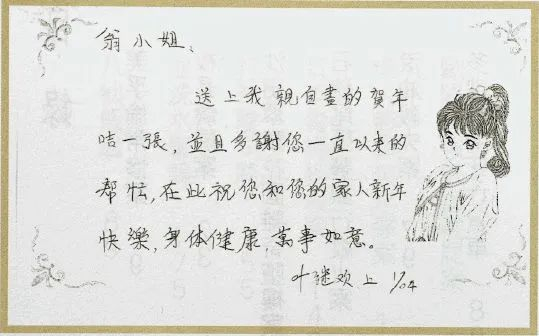 翁小姐：
送上我親自畫的賀年
咭一張，並且多謝您一直以來的
帮忙，在此祝您和您的家人新年
快樂，身体健康，萬事如意。
叶继欢上 1/04